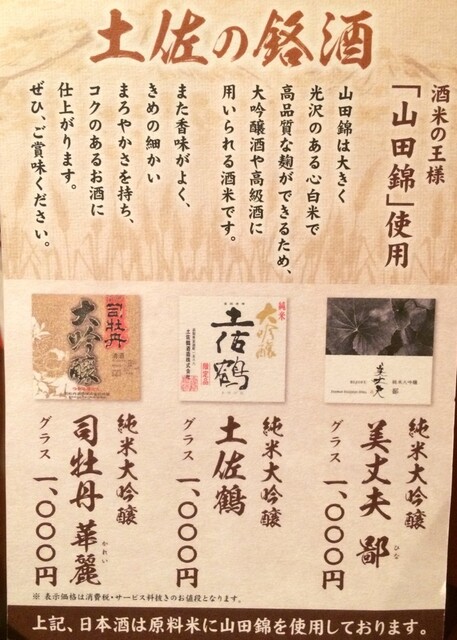 土佐の銘酒
酒米の王様
「山田錦」使用
山田錦は大きく
光沢のある心白米で
高品質な麹ができるため、
大吟醸酒や高級酒に
用いられる酒米です。
また香味がよく、
きめの細かい
まろやかさを持ち、
コクのあるお酒に
仕上がります。
ぜひ、ご賞味ください。
純米大吟醸
美丈夫 鄙
ひな
グラス 一、〇〇〇円
純米大吟醸
土佐鶴
グラス 一、〇〇〇円
純米大吟醸
司牡丹 華麗
かれい
グラス 一、〇〇〇円
美丈夫
純米大吟醸
鄙
純米
大吟醸
土佐鶴
土佐鶴酒造株式会社
限定品
司牡丹
大吟醸
清酒
※ 表示価格は消費税・サービス料抜きのお値段となります。
上記、日本酒は原料米に山田錦を使用しております。